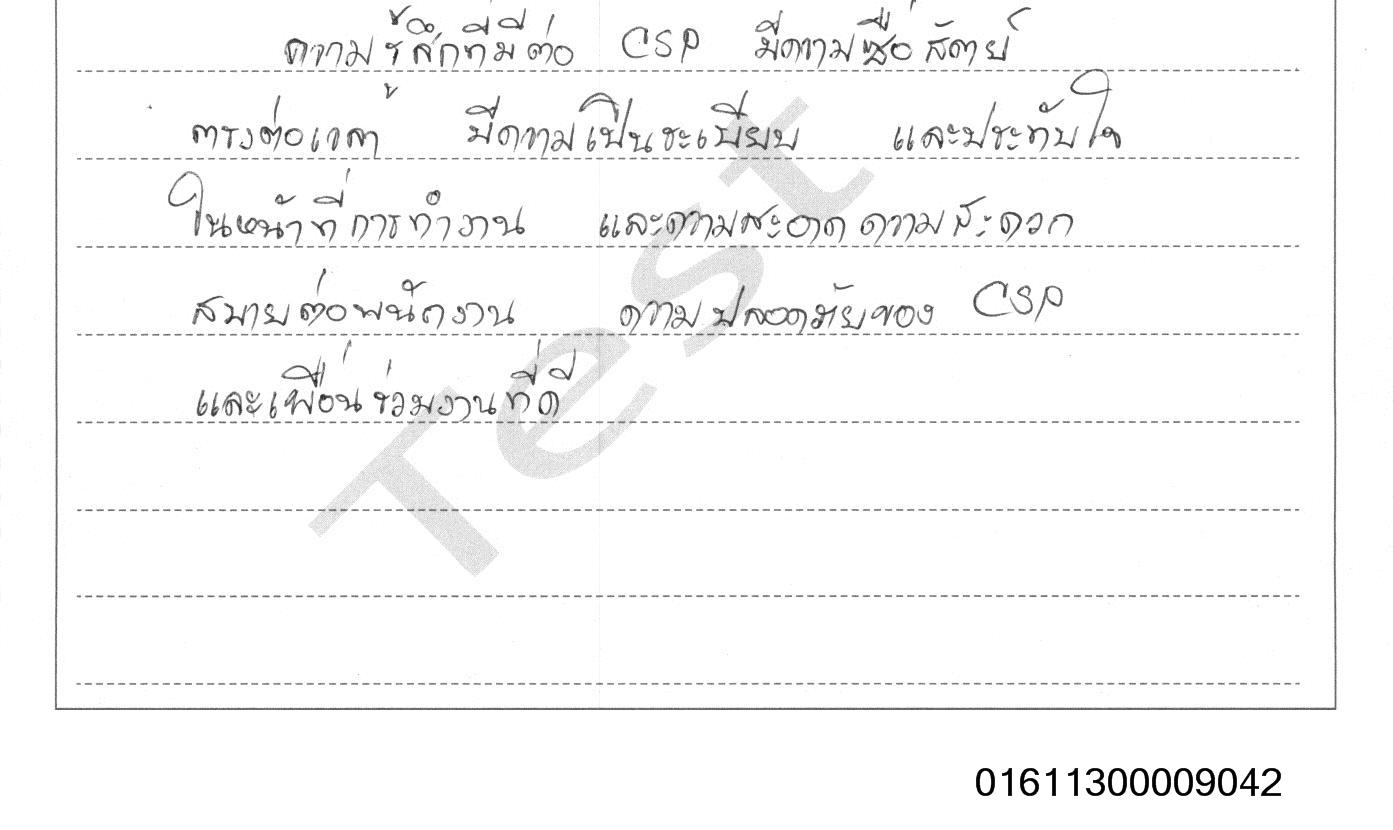 ความรู้สึกที่มีต่อ CSP มีความซื่อสัตย์
ตรงต่อเวลา มีความเป็นระเบียบ และประทับใจ
ในหน้าที่การทำงาน และความสะอาด ความสะดวก
สบายต่อพนักงาน ความปลอดภัยของ CSP
และเพื่อนร่วมงานที่ดี
Test
01611300009042